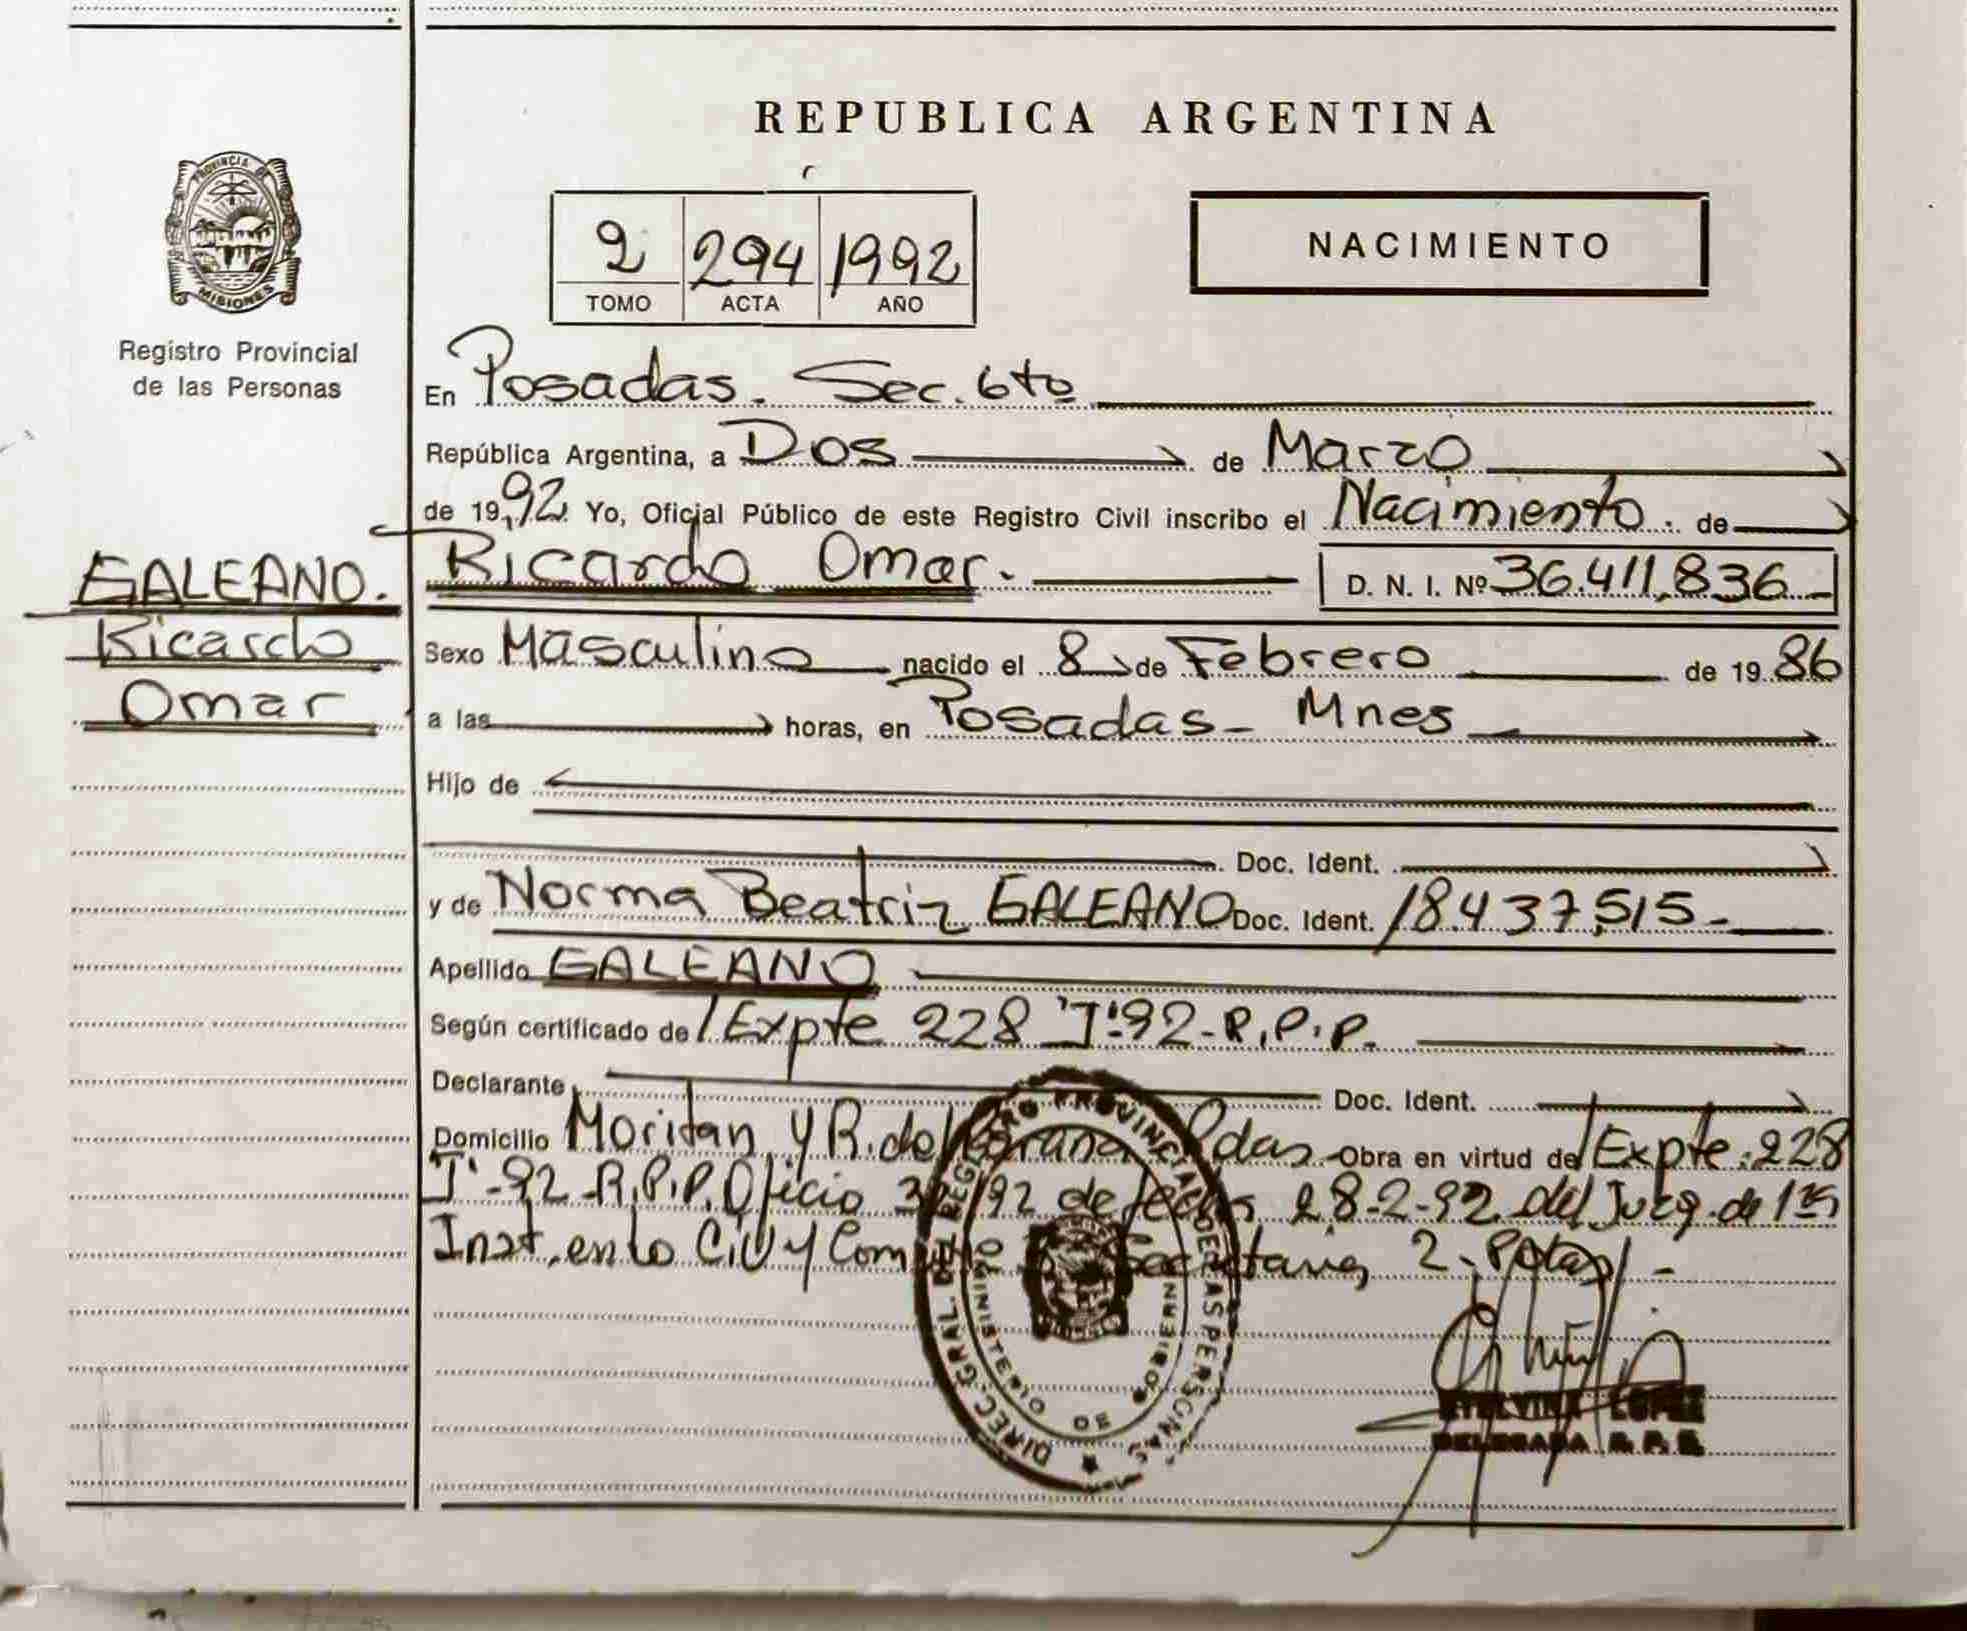 REPUBLICA ARGENTINA
PROVINCIA DE MISIONES
Registro Provincial
de las Personas
2 294 1992
TOMO ACTA AÑO
NACIMIENTO
En Posadas. Sec. 6to
República Argentina, a Dos de Marzo
de 1992 Yo, Oficial Público de este Registro Civil inscribo el Nacimiento. de
GALEANO.
Ricardo
Omar
Ricardo Omar. D. N. I. Nº 36.411.836
Sexo Masculino nacido el 8 de Febrero de 1986
a las horas, en Posadas - Mnes
Hijo de
Doc. Ident.
y de Norma Beatriz GALEANO Doc. Ident. 18.437.515-
Apellido GALEANO
Según certificado de / Expte 228 "I"-92-R.P.P.
Declarante Doc. Ident.
Domicilio Moritan y R. de Pdas - Obra en virtud de / Expte. 228
"I"-92-R.P.P. Oficio /92 de fecha 28-2-92 del Juzg. de 1ra
Inst. en lo Civ y Com Secretaria 2 -
DIREC. GRAL. DEL REGISTRO PROVINCIAL DE LAS PERSONAS
MINISTERIO DE GOBIERNO
ETELVINA LOPEZ
DELEGADA R. P. P.